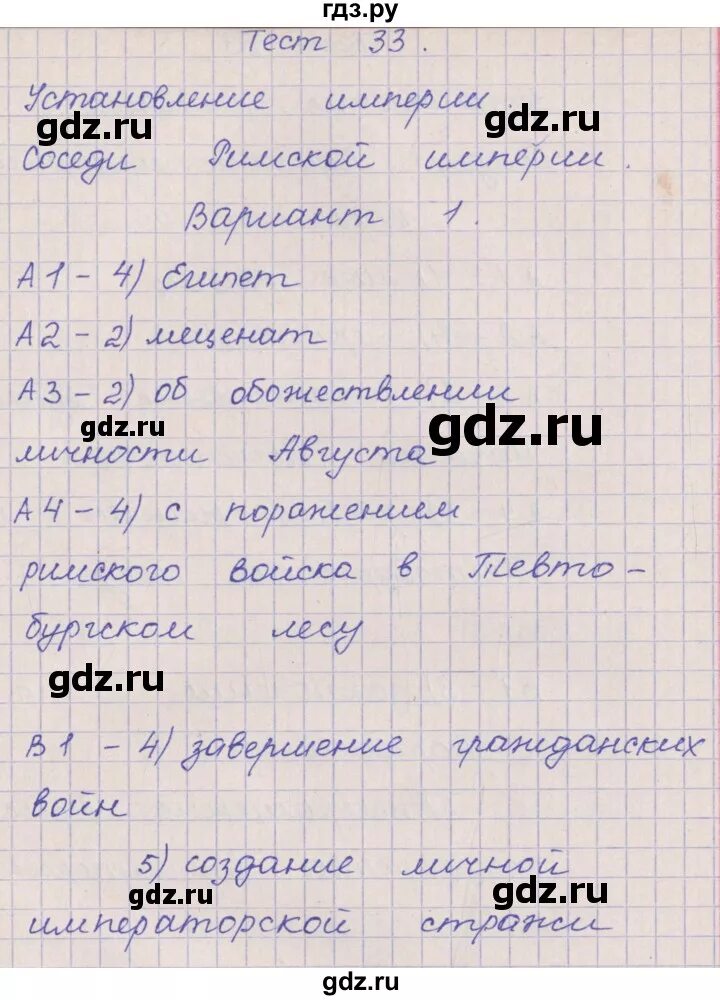 гдз.ру
Тест 33.
Установление империи.
gdz.ru
gdz.ru
Соседи Римской империи.
Вариант 1.
А1 - 4) Египет
А2 - 2) меценат
А3 - 2) об обожествлении
gdz.ru
gdz.ru
личности Августа
А4 - 4) с поражением
римского войска в Тевто-
бургском лесу
gdz.ru
В1 - 4) завершение гражданских
войн
5) создание личной
gdz.ru
gdz.ru
императорской стражи
gdz.ru